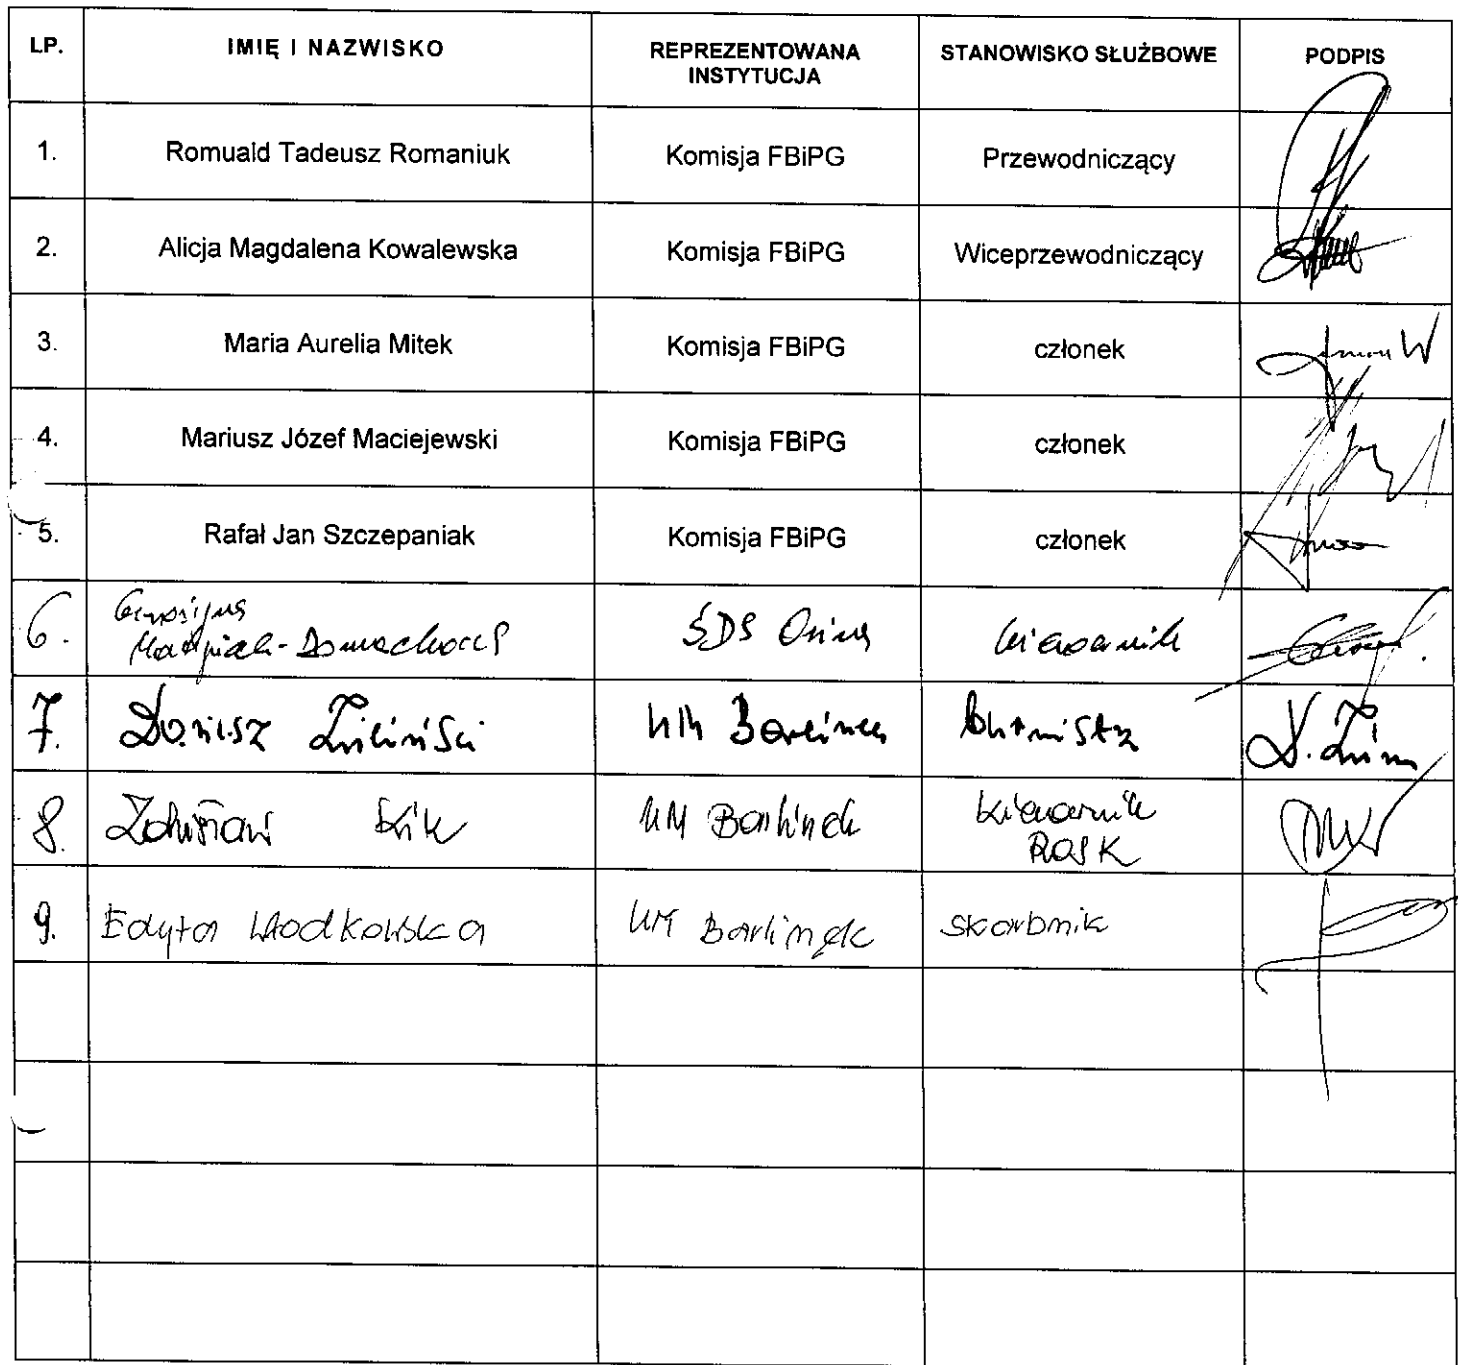 LP. IMIĘ I NAZWISKO REPREZENTOWANA INSTYTUCJA STANOWISKO SŁUŻBOWE PODPIS
1. Romuald Tadeusz Romaniuk Komisja FBiPG Przewodniczący
2. Alicja Magdalena Kowalewska Komisja FBiPG Wiceprzewodniczący
3. Maria Aurelia Mitek Komisja FBiPG członek
4. Mariusz Józef Maciejewski Komisja FBiPG członek
5. Rafał Jan Szczepaniak Komisja FBiPG członek
6. ŚDS kierownik
7. Dariusz Zieliński UM Barlinek Burmistrz D. Zieli
8. Zdzisław UM Barlinek kierownik
9. Edyta Włodkowska UM Barlinek skarbnik